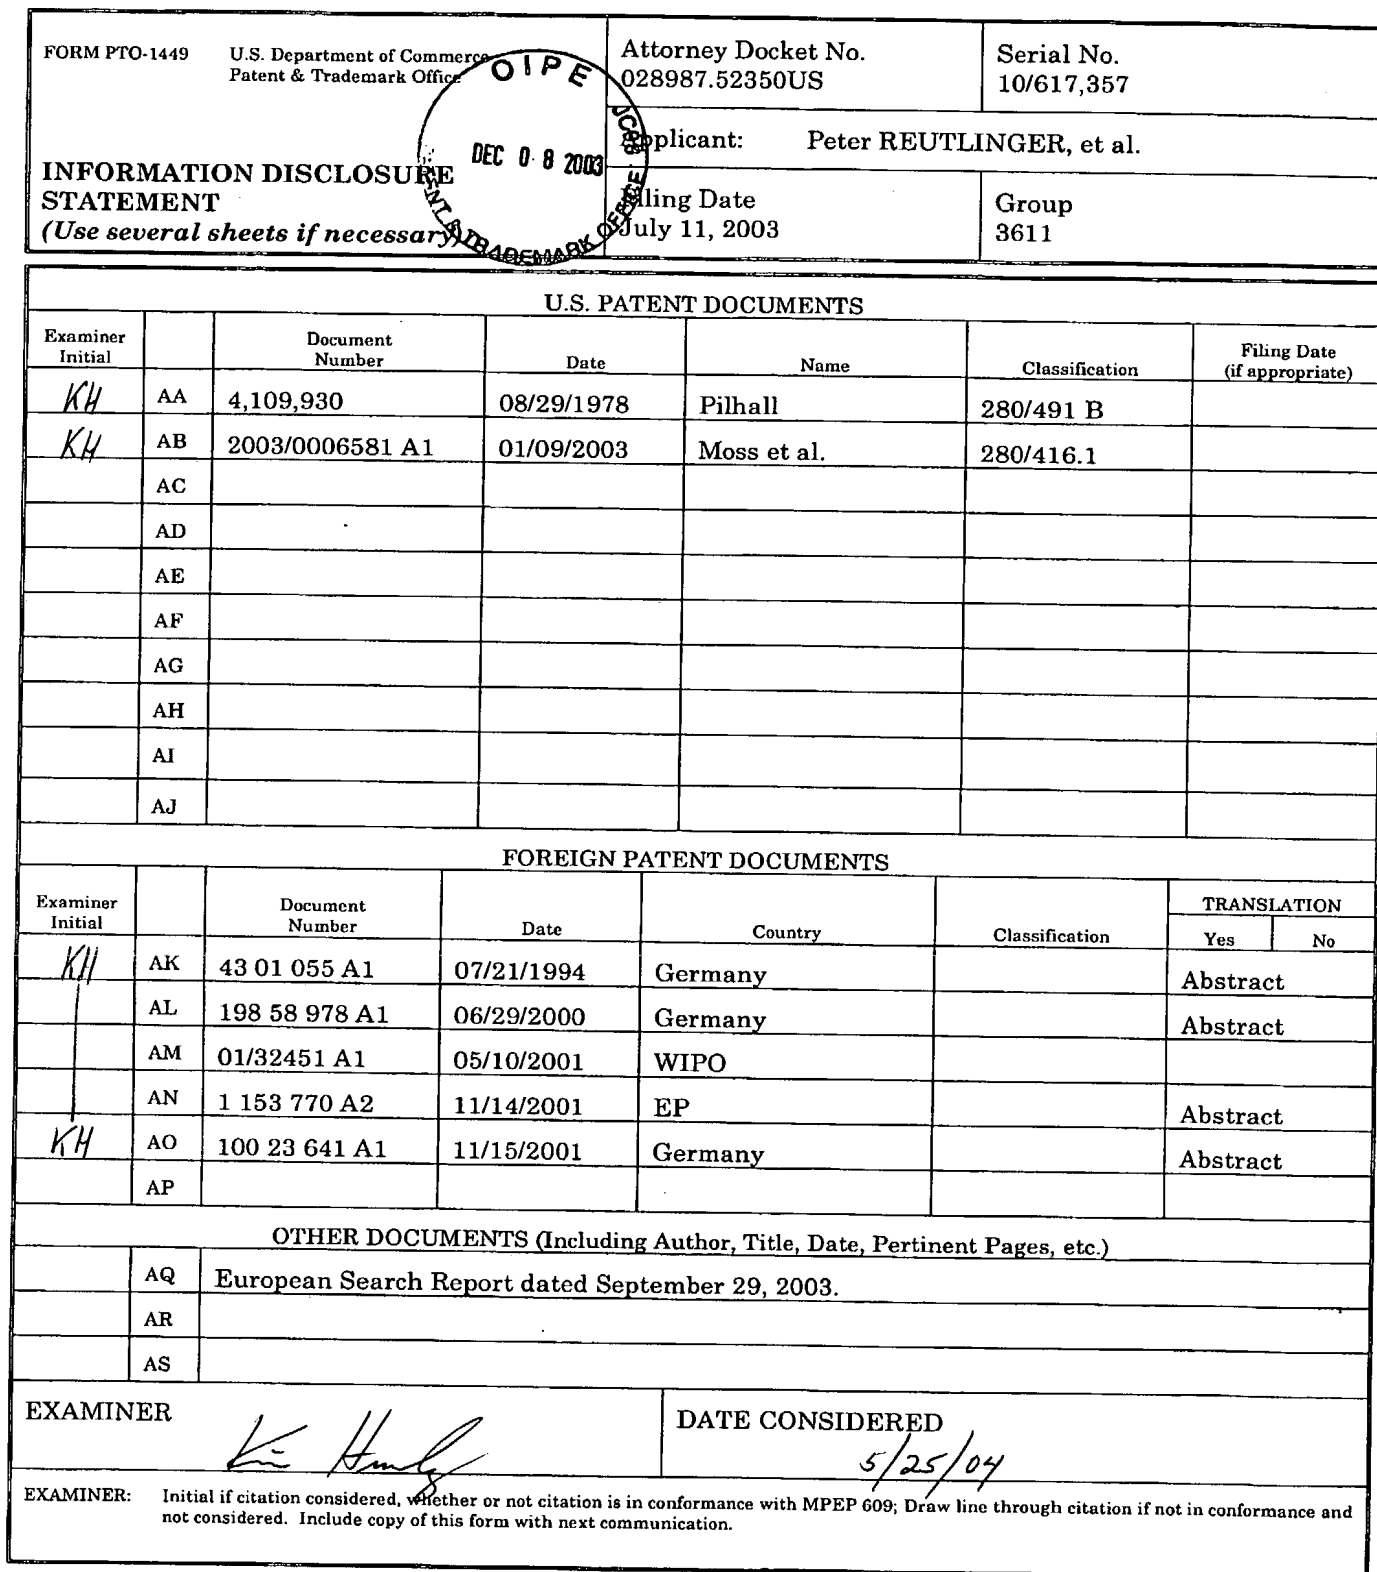 FORM PTO-1449 U.S. Department of Commerce
Patent & Trademark Office
INFORMATION DISCLOSURE
STATEMENT
(Use several sheets if necessary)
OIPE
DEC 08 2003
TRADEMARK OFFICE
Attorney Docket No.
028987.52350US
Serial No.
10/617,357
Applicant: Peter REUTLINGER, et al.
Filing Date
July 11, 2003
Group
3611
U.S. PATENT DOCUMENTS
Examiner Initial Document Number Date Name Classification Filing Date (if appropriate)
KH AA 4,109,930 08/29/1978 Pilhall 280/491 B
KH AB 2003/0006581 A1 01/09/2003 Moss et al. 280/416.1
AC
AD
AE
AF
AG
AH
AI
AJ
FOREIGN PATENT DOCUMENTS
Examiner Initial Document Number Date Country Classification TRANSLATION Yes No
KH AK 43 01 055 A1 07/21/1994 Germany Abstract
AL 198 58 978 A1 06/29/2000 Germany Abstract
AM 01/32451 A1 05/10/2001 WIPO
AN 1 153 770 A2 11/14/2001 EP Abstract
KH AO 100 23 641 A1 11/15/2001 Germany Abstract
AP
OTHER DOCUMENTS (Including Author, Title, Date, Pertinent Pages, etc.)
AQ European Search Report dated September 29, 2003.
AR
AS
EXAMINER
DATE CONSIDERED
5/25/04
EXAMINER: Initial if citation considered, whether or not citation is in conformance with MPEP 609; Draw line through citation if not in conformance and
not considered. Include copy of this form with next communication.